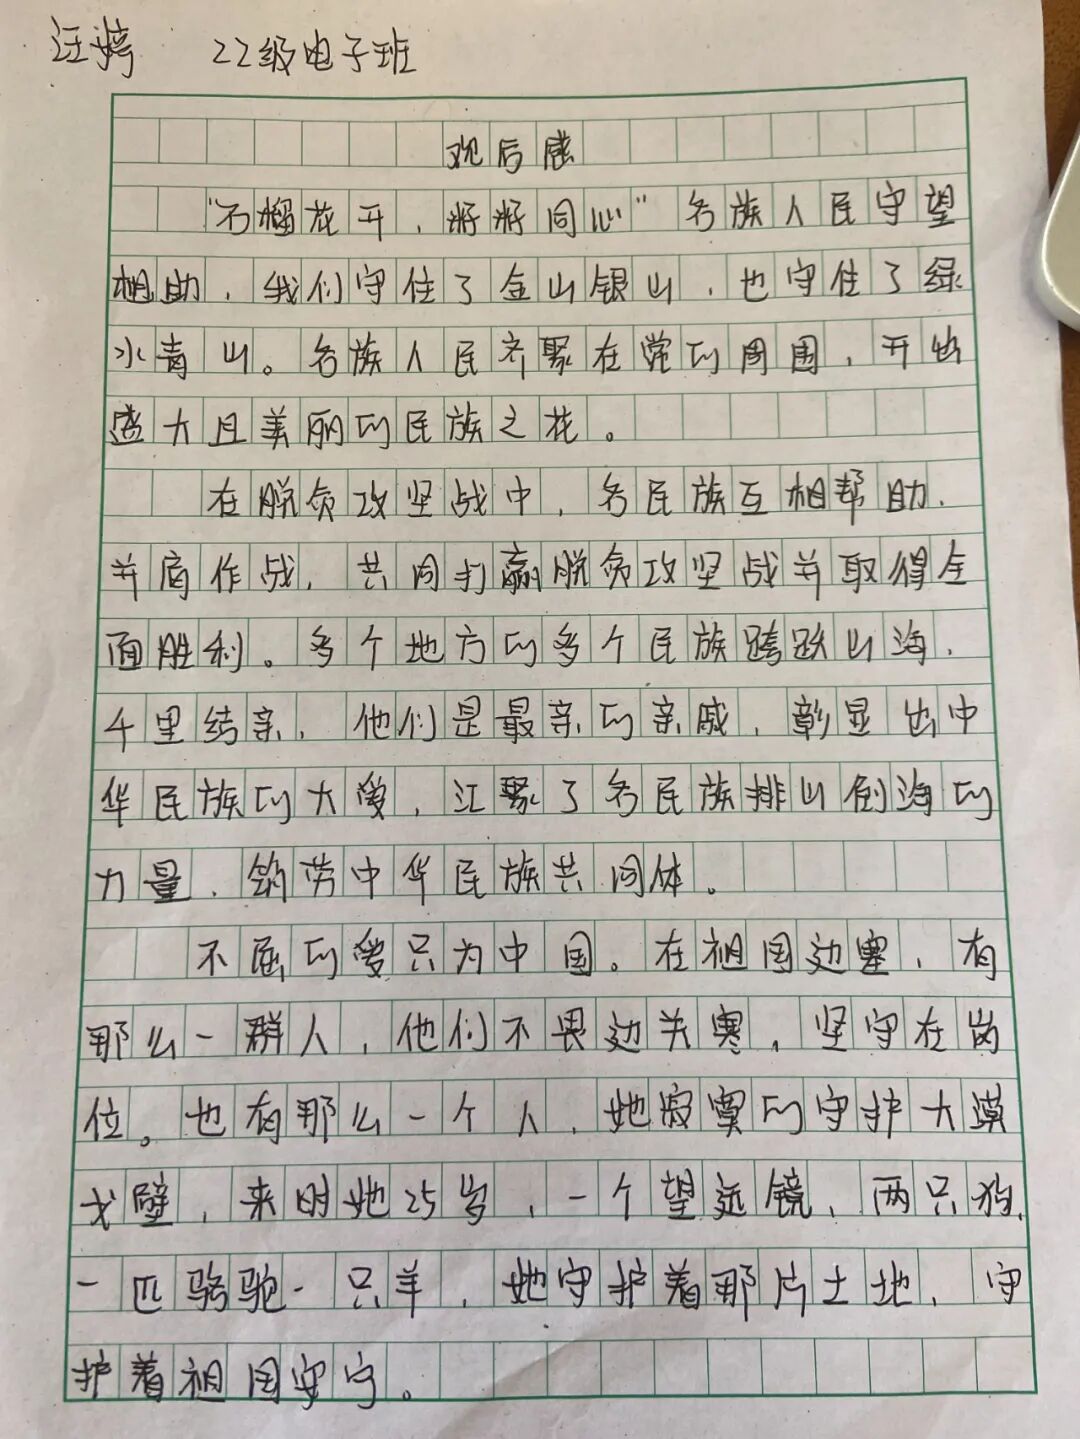 汪婷 22级电子班
观后感
“石榴花开，籽籽同心”各族人民守望
相助，我们守住了金山银山，也守住了绿
水青山。各族人民齐聚在党的周围，开出
盛大且美丽的民族之花。
在脱贫攻坚战中，各民族互相帮助，
并肩作战，共同打赢脱贫攻坚战并取得全
面胜利。多个地方的多个民族跨跃山海，
千里结亲，他们是最亲的亲戚，彰显出中
华民族的大爱，汇聚了各民族排山倒海的
力量，铸劳中华民族共同体。
不屈的爱只为中国。在祖国边塞，有
那么一群人，他们不畏边关寒，坚守在岗
位。也有那么一个人，她寂寞的守护大漠
戈壁，来时她25岁，一个望远镜，两只狗，
一匹骆驼一只羊，她守护着那片土地，守
护着祖国安宁。